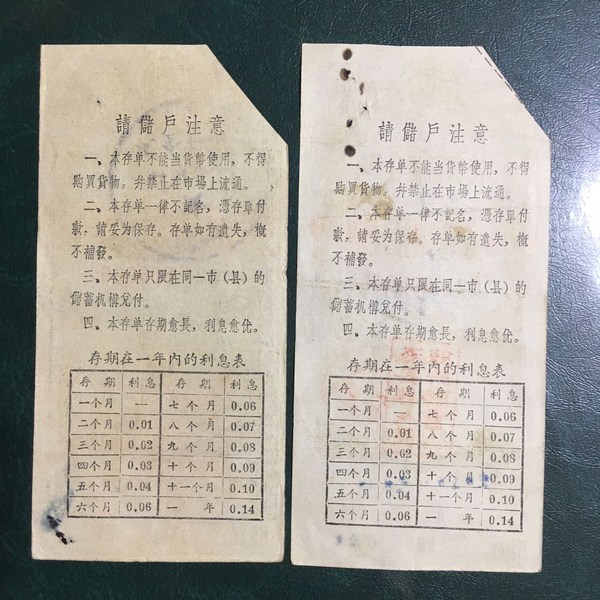 請儲戶注意
一、本存单不能当貨幣使用，不得
購買貨物。并禁止在市場上流通。
二、本存单一律不記名，憑存單付
款，請妥为保存。存单如有遺失，概
不補發。
三、本存单只限在同一市（县）的
儲蓄机構兌付。
四、本存单存期愈長，利息愈优。
存期在一年內的利息表
存期 利息 存期 利息
一个月 — 七个月 0.06
二个月 0.01 八个月 0.07
三个月 0.02 九个月 0.08
四个月 0.03 十个月 0.09
五个月 0.04 十一个月 0.10
六个月 0.06 一年 0.14
請儲戶注意
一、本存单不能当貨幣使用，不得
購買貨物。并禁止在市場上流通。
二、本存单一律不記名，憑存單付
款，請妥为保存。存单如有遺失，概
不補發。
三、本存单只限在同一市（县）的
儲蓄机構兌付。
四、本存单存期愈長，利息愈优。
存期在一年內的利息表
存期 利息 存期 利息
一个月 — 七个月 0.06
二个月 0.01 八个月 0.07
三个月 0.02 九个月 0.08
四个月 0.03 十个月 0.09
五个月 0.04 十一个月 0.10
六个月 0.06 一年 0.14